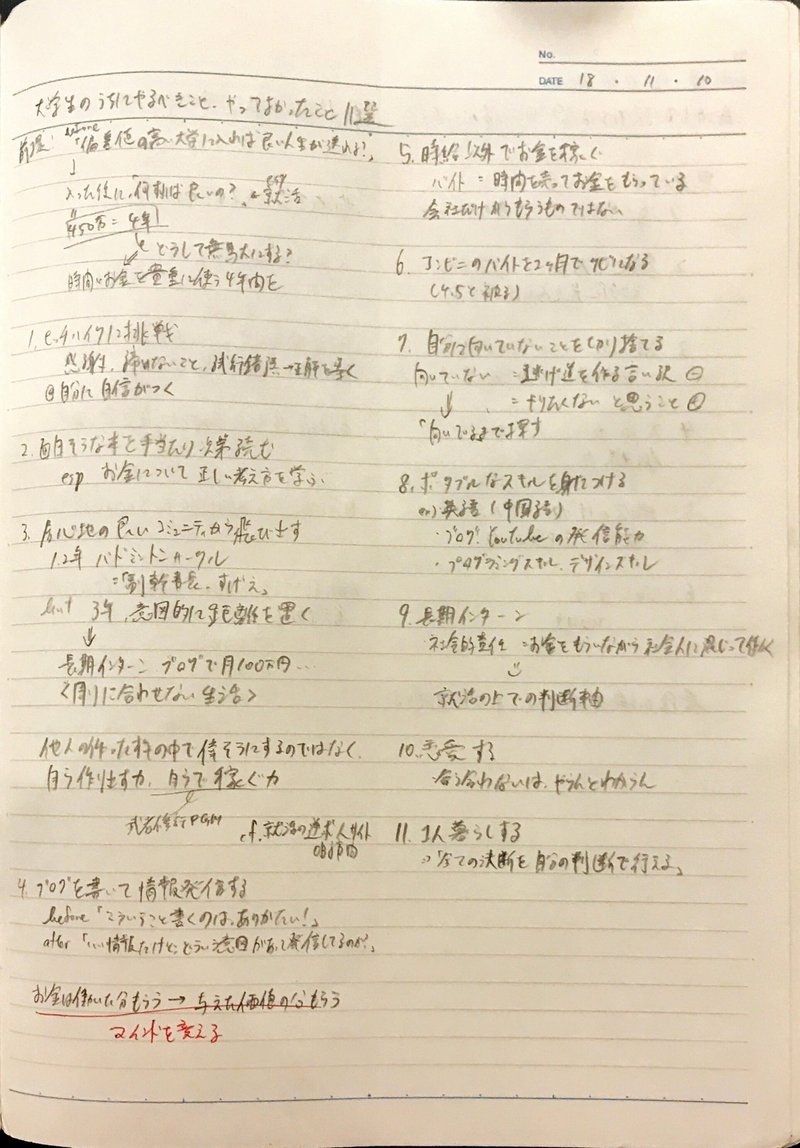 No.
DATE 18 ・ 11 ・ 10
大学生のうちにやるべきこと、やってよかったこと 11選
前提: before「偏差値の高い大学に入れば良い人生が送れる?」
↓
入った後に「何すれば良いの?」 ← esp 就活
450万 = 4年
どうして無駄にする?
時間とお金を貴重に使う4年間を
1. ヒッチハイクに挑戦
感謝、諦めないこと、試行錯誤→正解を導く
◎自分に自信がつく
2. 面白そうな本を手当たり次第読む
esp お金について正しい考え方を学ぶ
3. 居心地の良いコミュニティから飛び出す
1.2年 バドミントンサークル
=「副幹事長、すげえ」
but 3年、意図的に距離を置く
↓
長期インターン ブログで月100万円…
〈周りに合わせない生活〉
他人の作った枠の中で偉そうにするのではなく、
自ら作り出す力、自らで稼ぐ力
武者修行PGM
cf. 就活の逆求人サイト
4. ブログを書いて情報発信する
before「こういうこと書くのは、ありがたい!」
after「いい情報だけど、どういう意図があって発信してるのか?」
お金は働いた分もらう → 与えた価値の分もらう
マインドを変える
5. 時給以外でお金を稼ぐ
バイト = 時間を売ってお金をもらっている
会社だけからもらうものではない
6. コンビニのバイトを2ヶ月でクビになる
(4,5と被る)
7. 自分に向いていないことを切り捨てる
向いていない = 逃げ道を作る言い訳 ⊖
= やりたくない と思うこと ⊕
↓
「向いてる」まで探す
8. ポータブルなスキルを身につける
ex) 英語 (中国語)
・ブログ、Youtubeの発信能力
・プログラミングスキル、デザインスキル
9. 長期インターン
社会的責任 = お金をもらいながら社会人に混じって働く
↓
就活の上での判断軸
10. 恋愛する
合う合わないは、やらんとわからん
11. 1人暮らしする
⊃「全ての決断を自分の判断で行える」